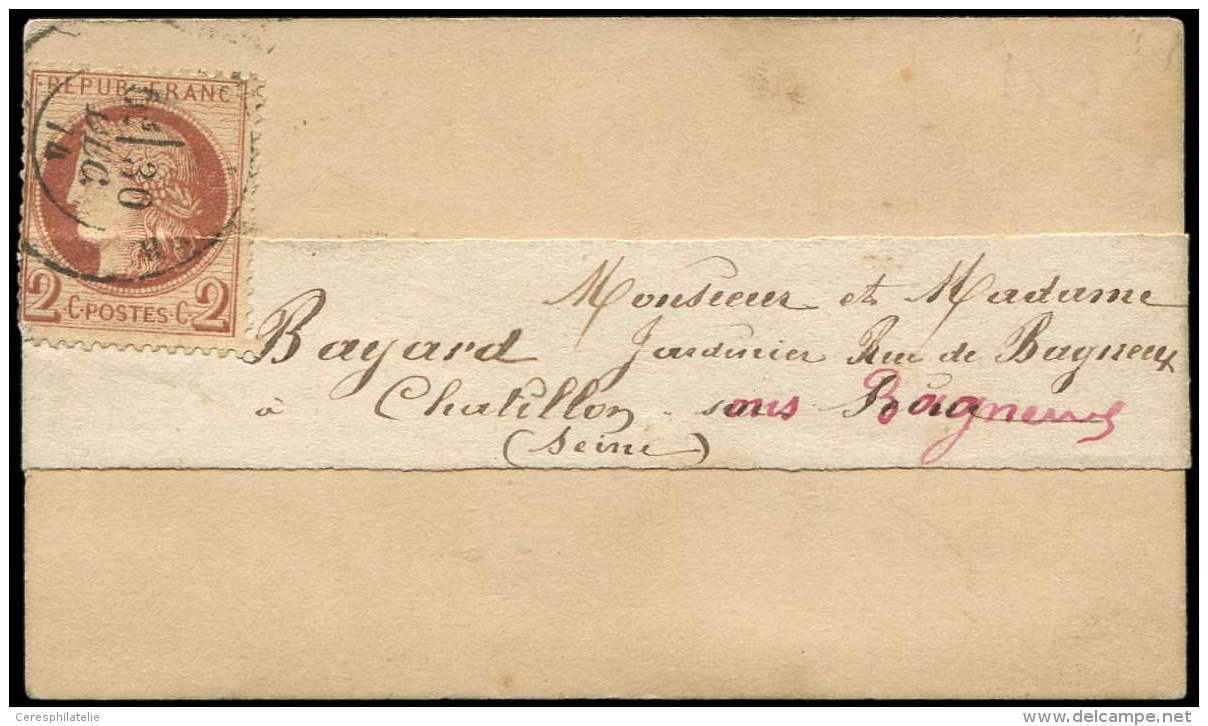 REPUB FRANC
20
DEC
74
2 C·POSTES·C 2
Monsieur et Madame
Bayard Jardinier Rue de Bagneux
à Chatillon sous Bagneux
(Seine)
Ceresphilatelie
www.delcampe.net